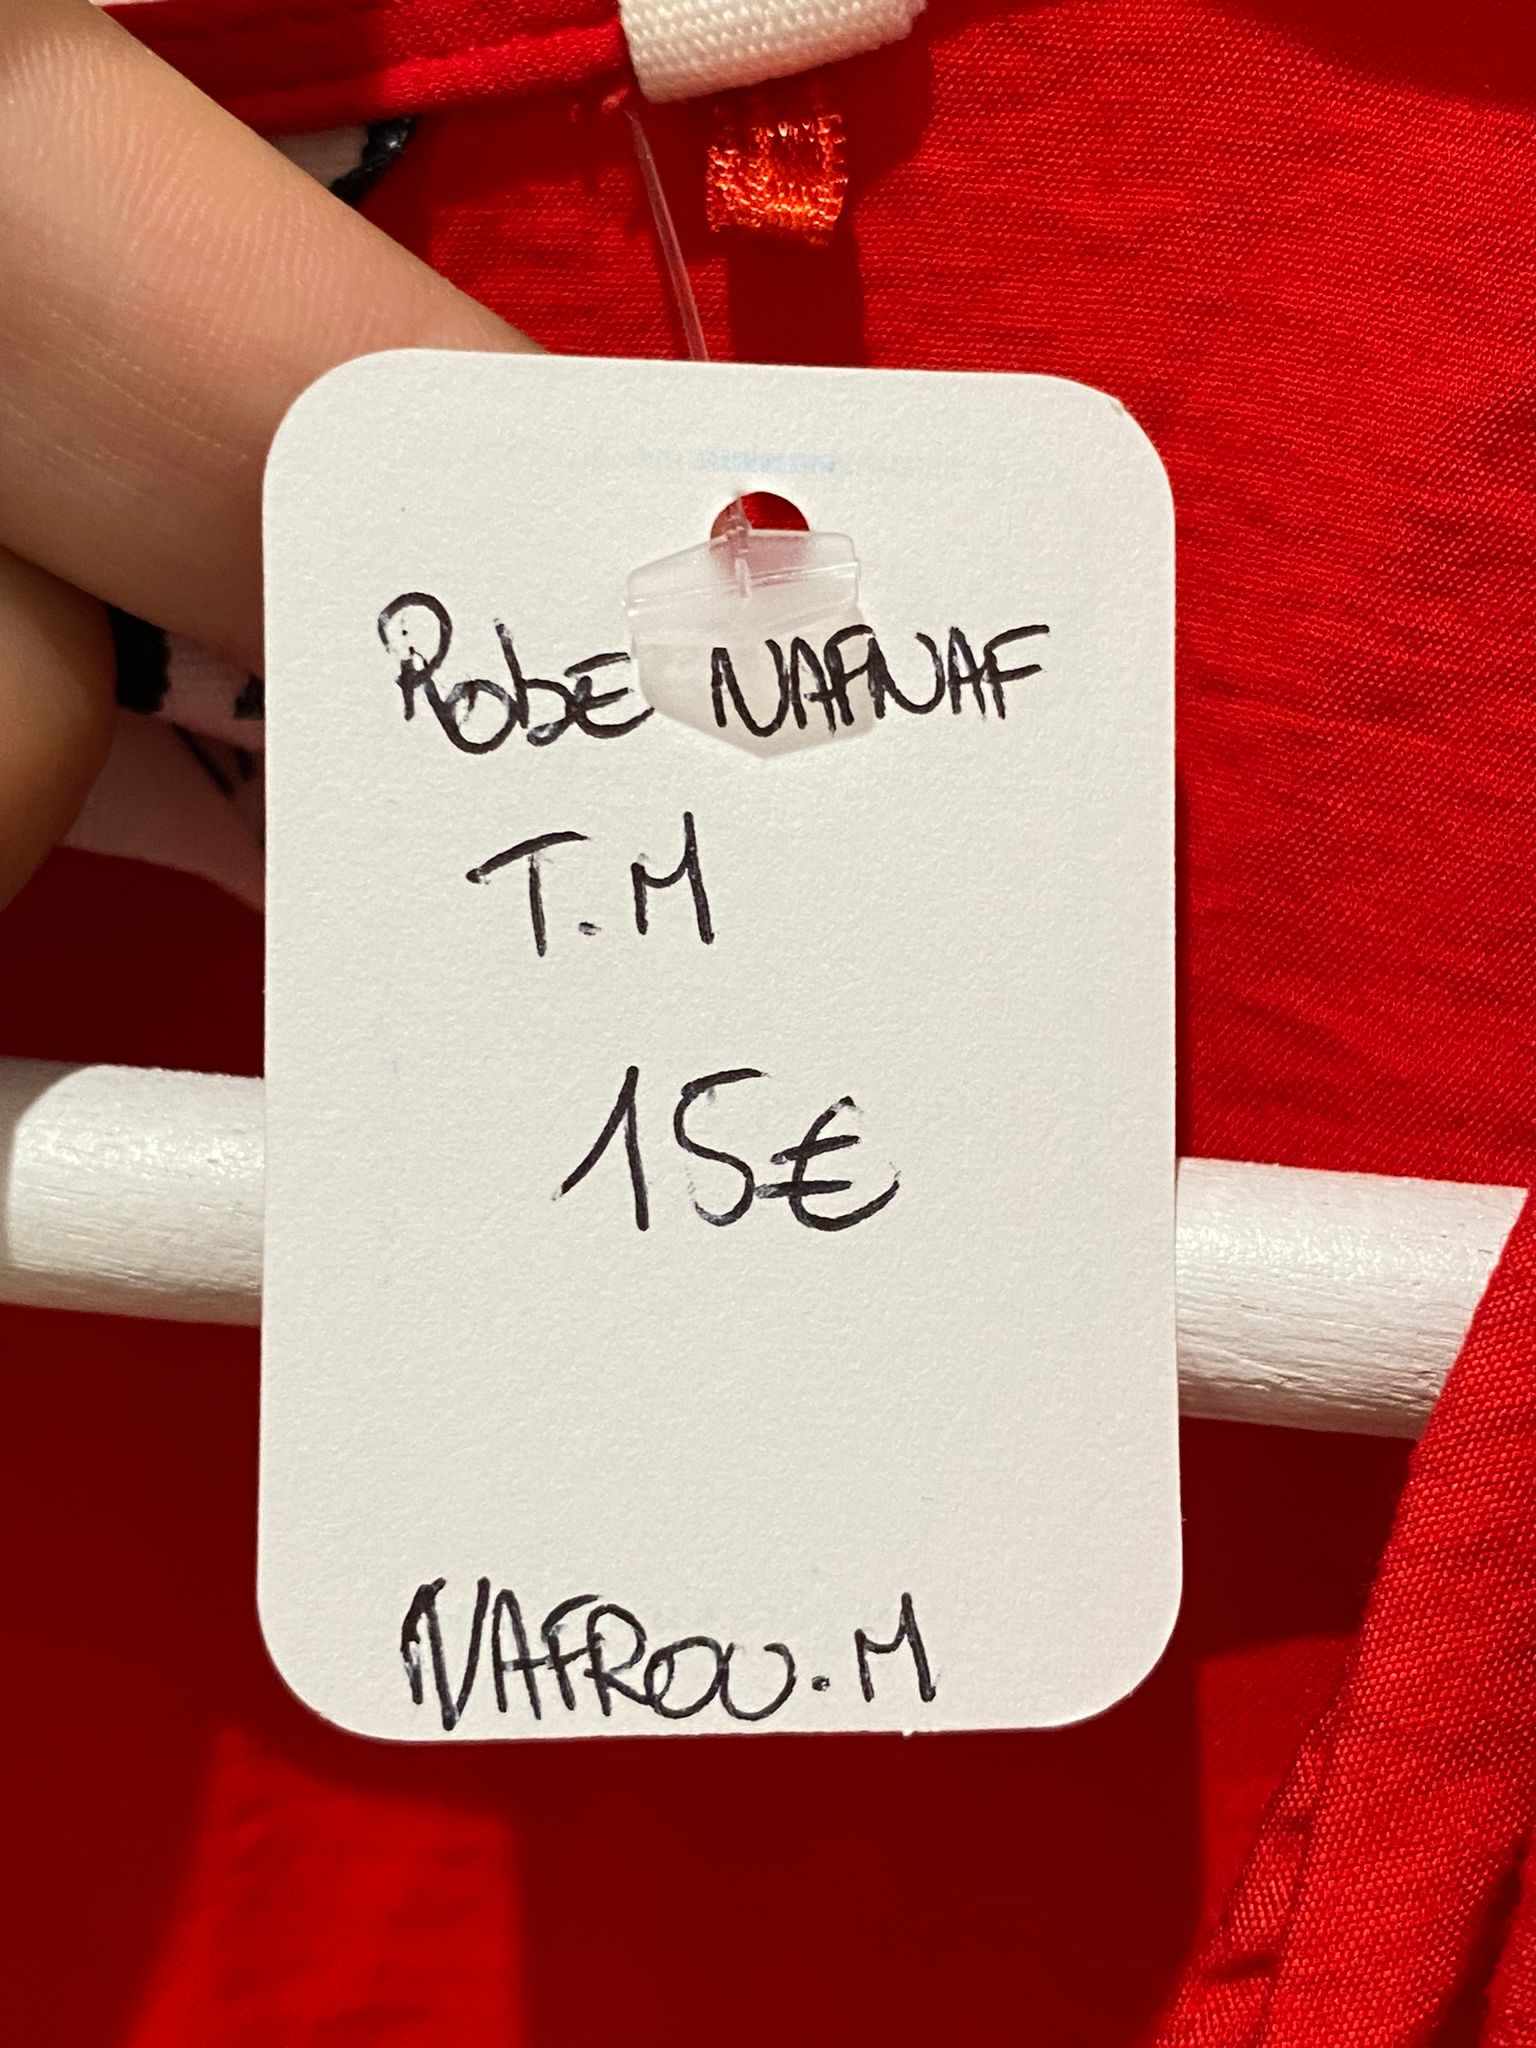 Robe NAFNAF
T.M
15€
NAFROU.M